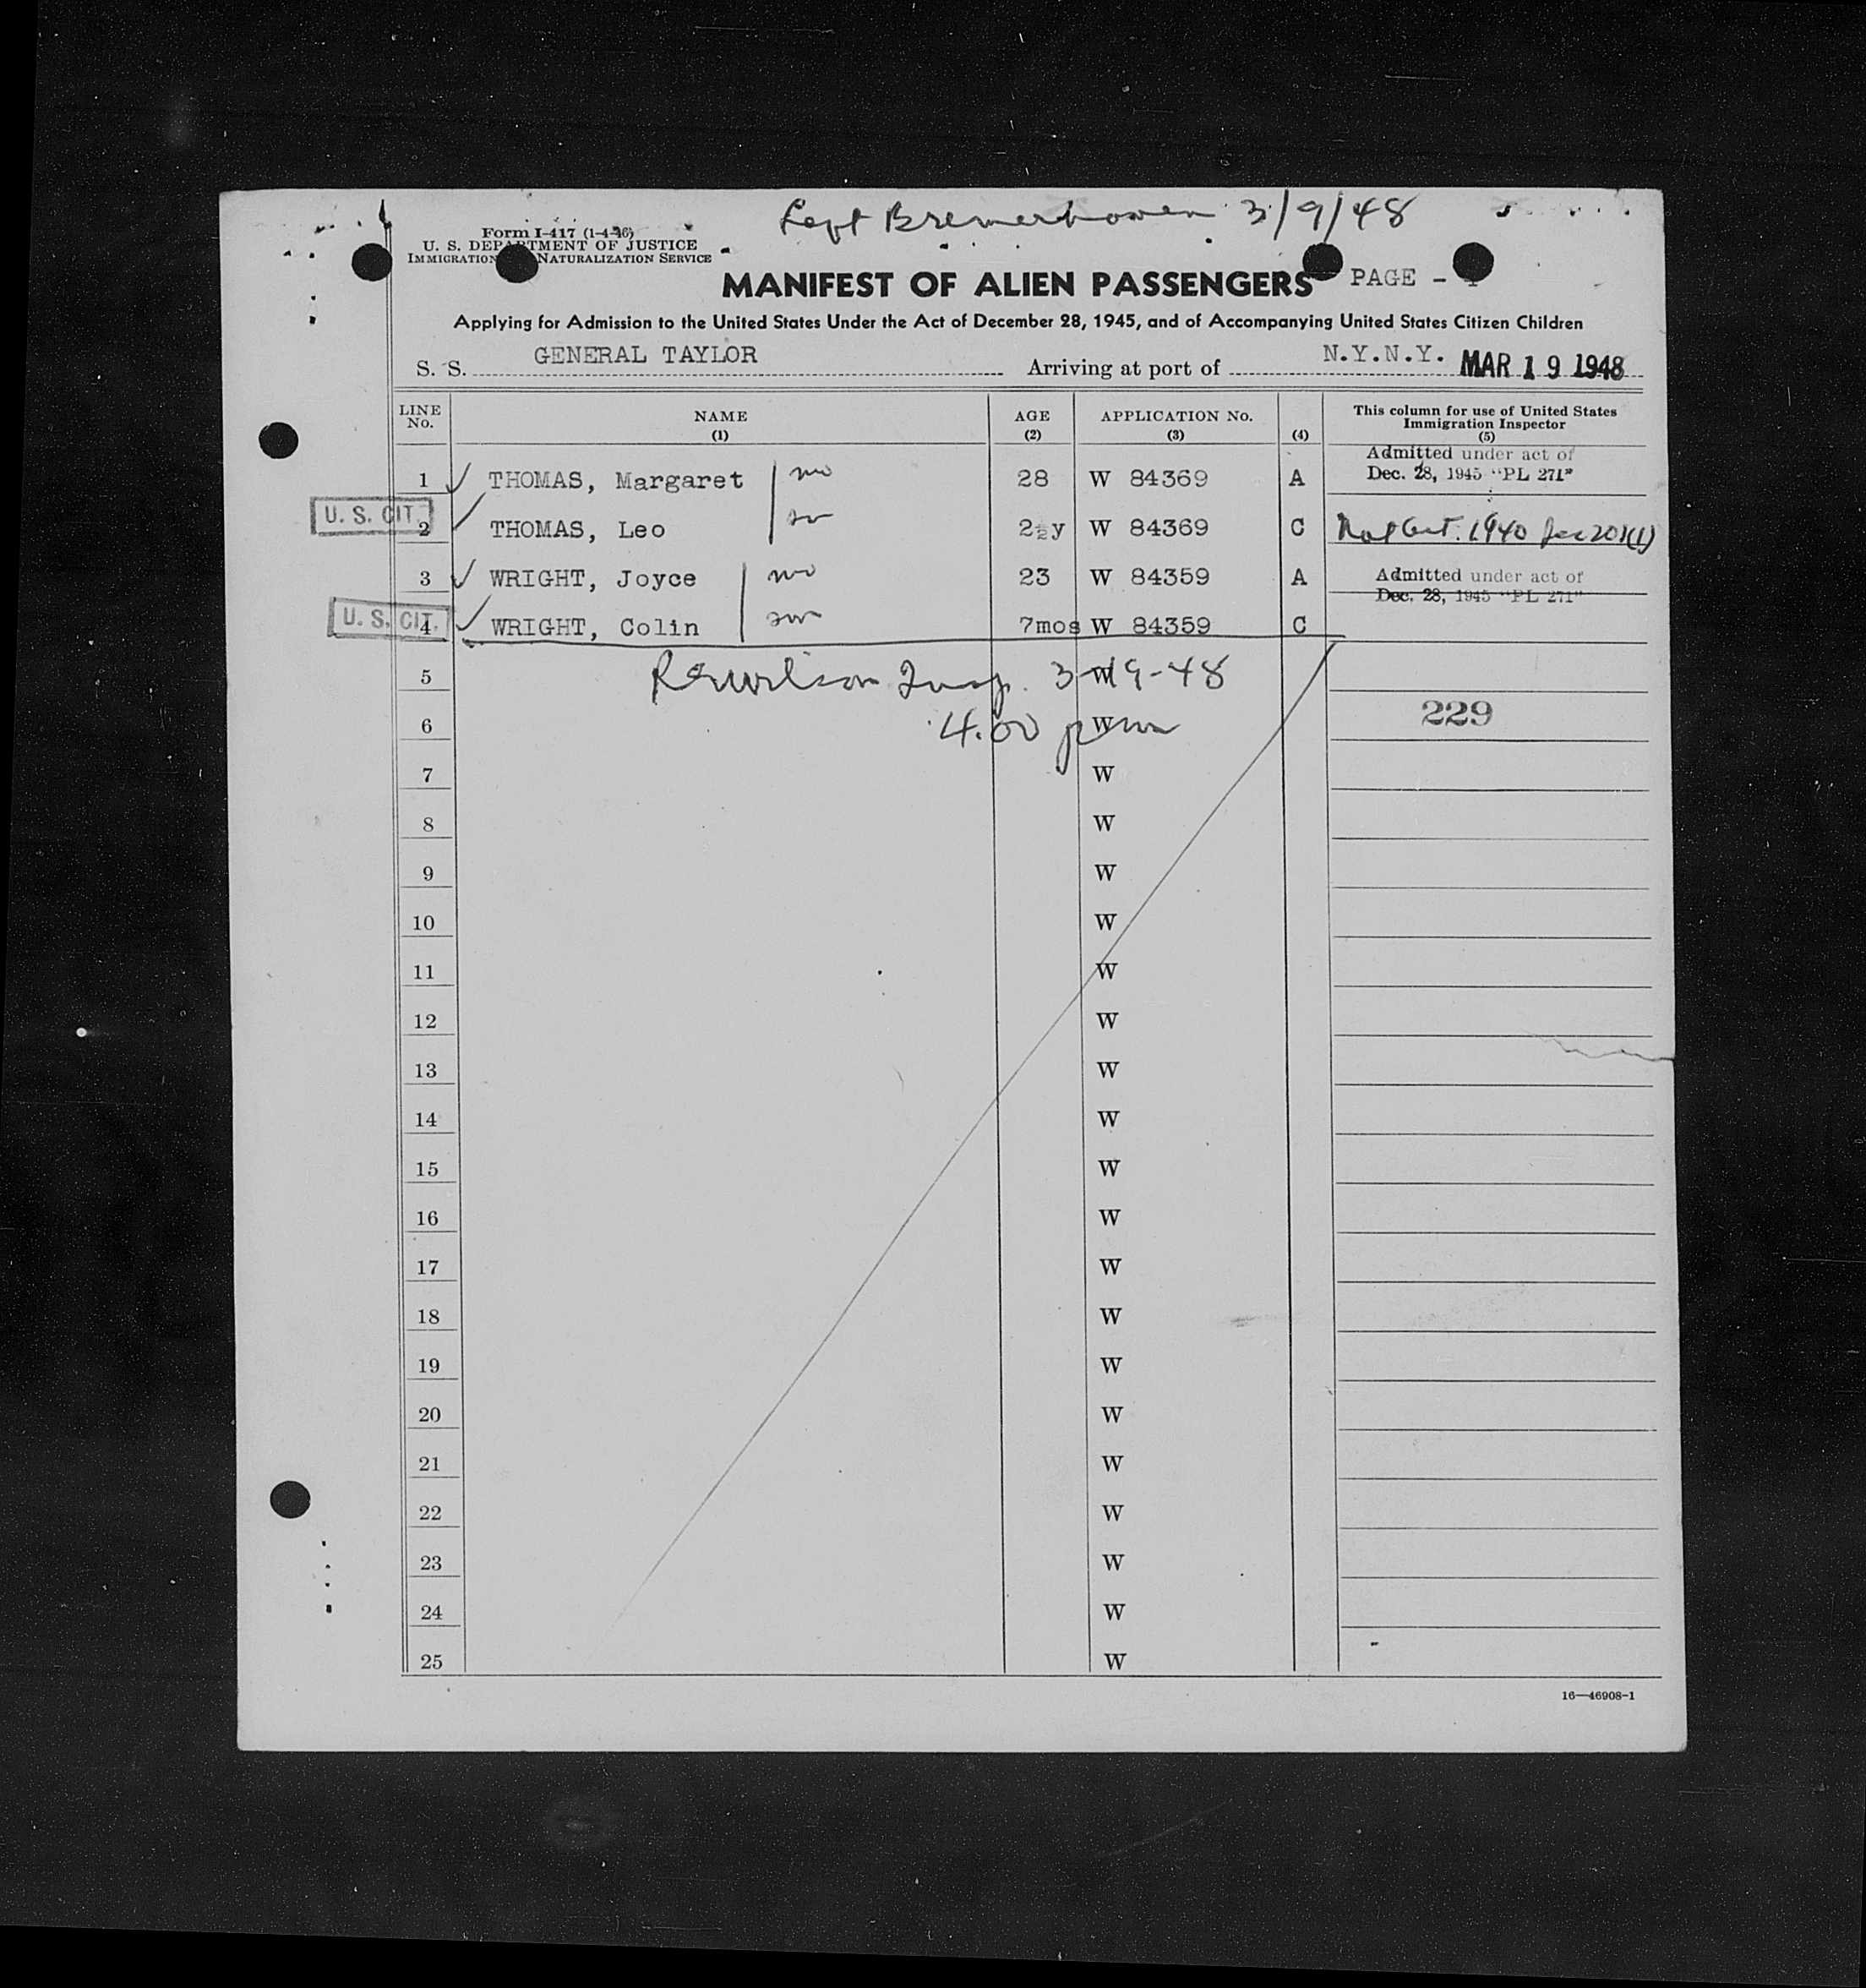 Left Bremerhaven 3/9/48
Form I-417 (1-4-46)
U. S. DEPARTMENT OF JUSTICE
IMMIGRATION NATURALIZATION SERVICE
MANIFEST OF ALIEN PASSENGERS PAGE -
Applying for Admission to the United States Under the Act of December 28, 1945, and of Accompanying United States Citizen Children
S. S. GENERAL TAYLOR Arriving at port of N.Y.N.Y. MAR 19 1948
LINE No. NAME (1) AGE (2) APPLICATION No. (3) (4) This column for use of United States Immigration Inspector (5)
1 THOMAS, Margaret mo 28 W 84369 A Admitted under act of Dec. 28, 1945 "PL 271"
U. S. CIT. 2 THOMAS, Leo son 2½y W 84369 C Nat Act. 1940 Sec 201(i)
3 WRIGHT, Joyce mo 23 W 84359 A Admitted under act of Dec. 28, 1945 "PL 271"
U. S. CIT. 4 WRIGHT, Colin son 7mos W 84359 C
5 Wilson Insp. 3-19-48 W
6 4.00 pm W 229
7 W
8 W
9 W
10 W
11 W
12 W
13 W
14 W
15 W
16 W
17 W
18 W
19 W
20 W
21 W
22 W
23 W
24 W
25 W
16—46908-1